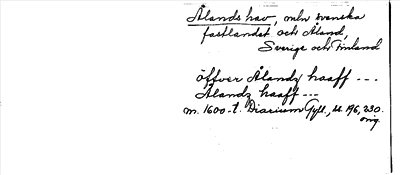 Ålands hav, mln svenska
fastlandet och Åland,
Sverige och Finland
öffver Ålandz haaff ---
Ålandz haaff ---
m. 1600-t. Diarium Gyll., s. 196, 230.
orig.